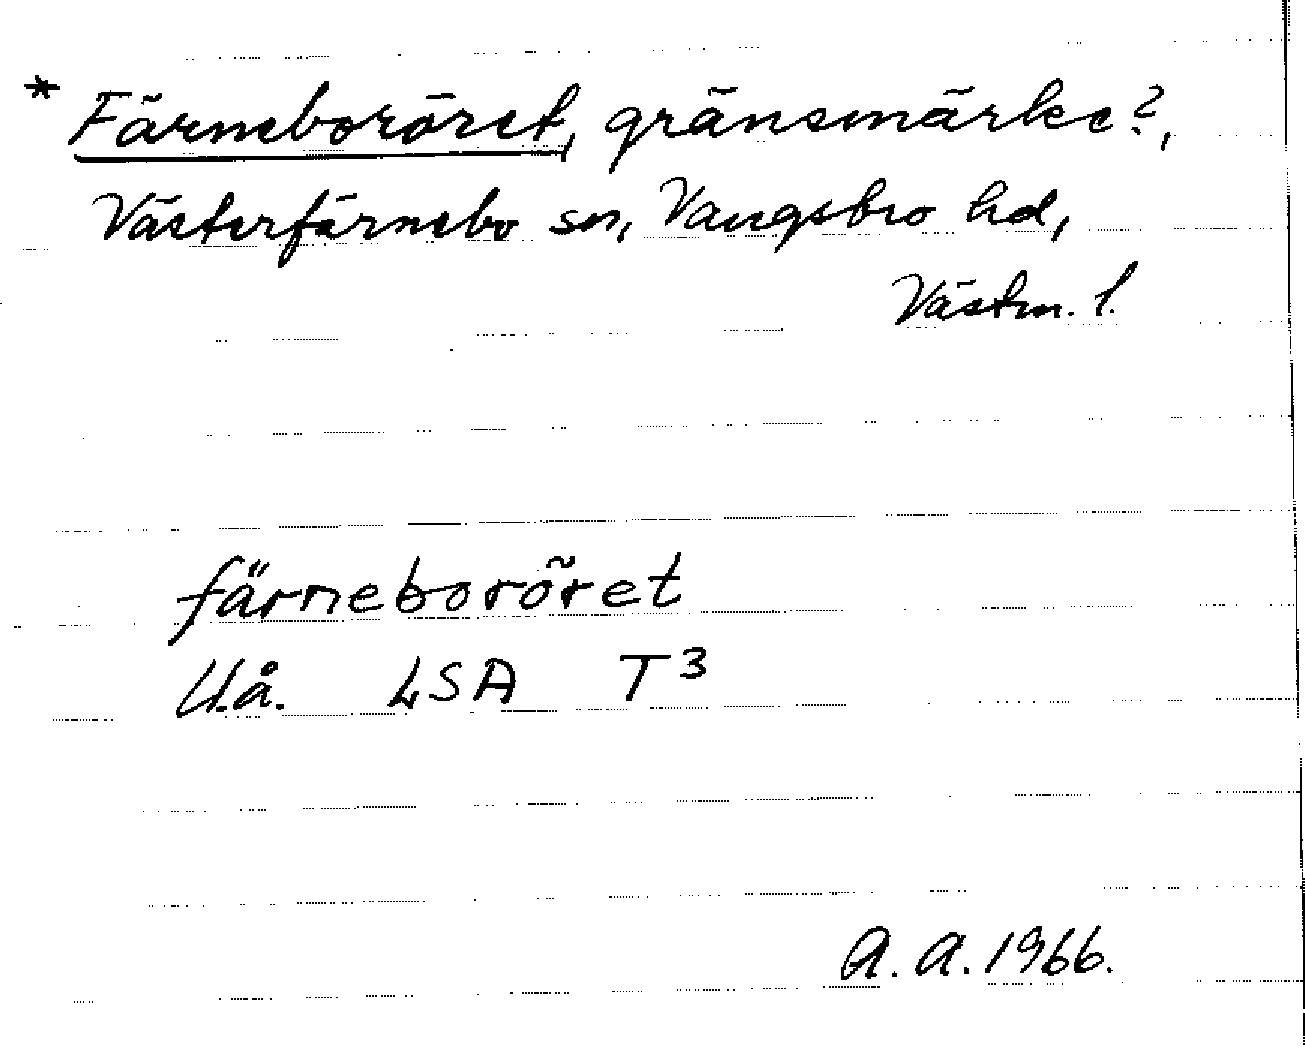 * Färneboröret, gränsmärke?,
Västerfärnebo sn, Vangsbro hd,
Västm. l.
färneboröret
U.å. LSA T3
A.A. 1966.